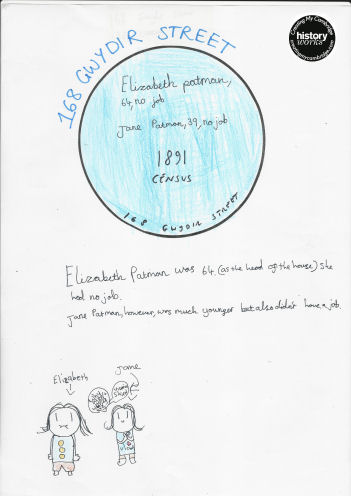 168 GWYDIR STREET
Creating My Cambridge
history
works
creatingmycambridge.com
Elizabeth patman,
64, no job
Jane Patman, 39, no job
1891
CENSUS
168 GWYDIR STREET
Elizabeth Patman was 64 (as the head of the house) She
had no job.
Jane Patman, however, was much younger but also didn't have a job.
Elizabeth
Jane